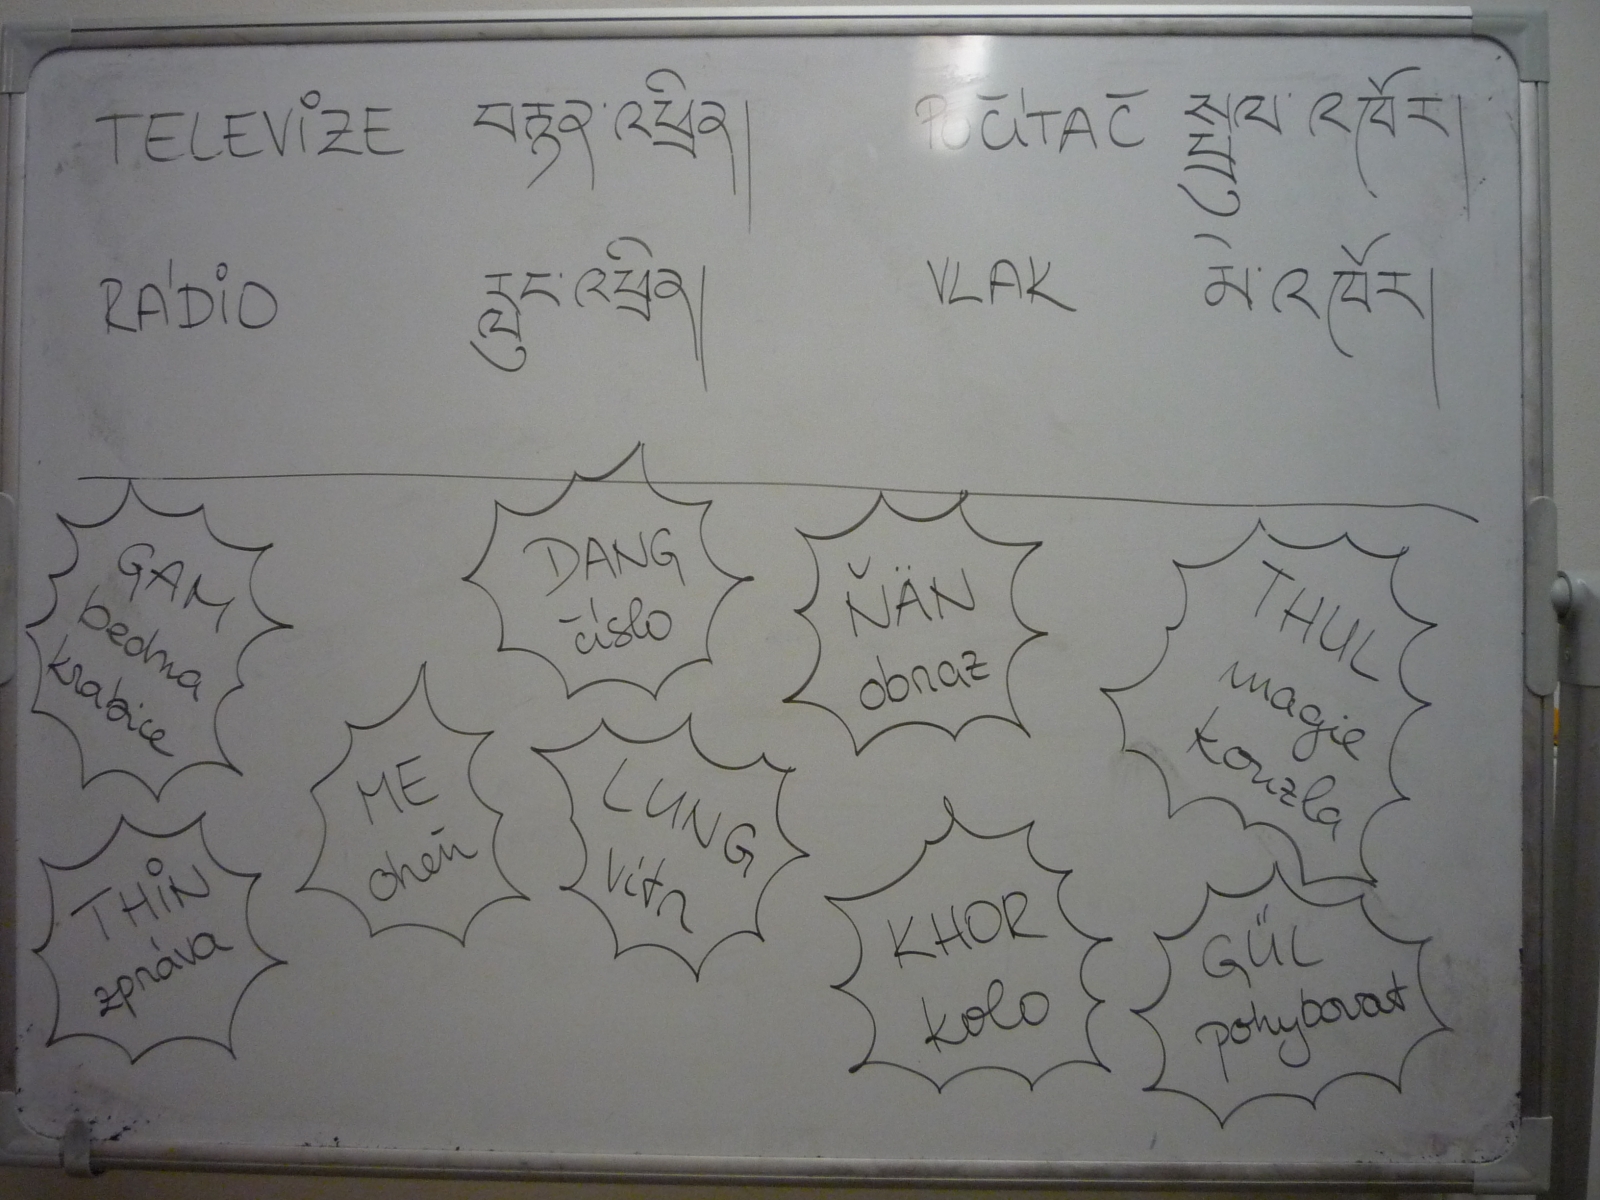 TELEVIZE བརྙན་འཕྲིན།
POČÍTAČ སྤྲུལ་འཁོར།
RÁDIO རླུང་འཕྲིན།
VLAK མེ་འཁོར།
GAM
bedna
krabice
DANG
číslo
ŇÄN
obraz
THUL
magie
kouzla
ME
oheň
LUNG
vítr
THIN
zpráva
KHOR
kolo
GÜL
pohybovat